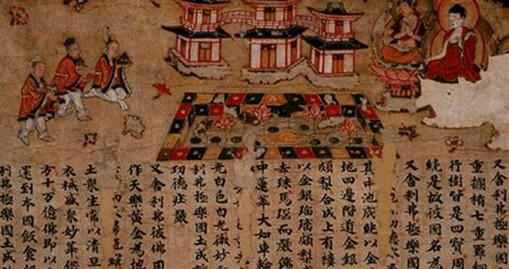 又舍利弗極
重欄楯七重羅
行樹皆是四寶周
繞是故彼國名為
又舍利弗極樂國
其中池底純以金
地四邊階道金銀
頗梨合成上有樓
以金銀瑠璃頗梨
赤珠馬瑙而嚴飾
中蓮華大如車輪
光白色白光微妙
利弗極樂國土成
功德莊嚴
又舍利弗彼佛國
作天樂黃金為地
土眾生常以清旦
衣裓盛眾妙華供
方十万億佛即以
還到本國飯食
利弗極樂國土成